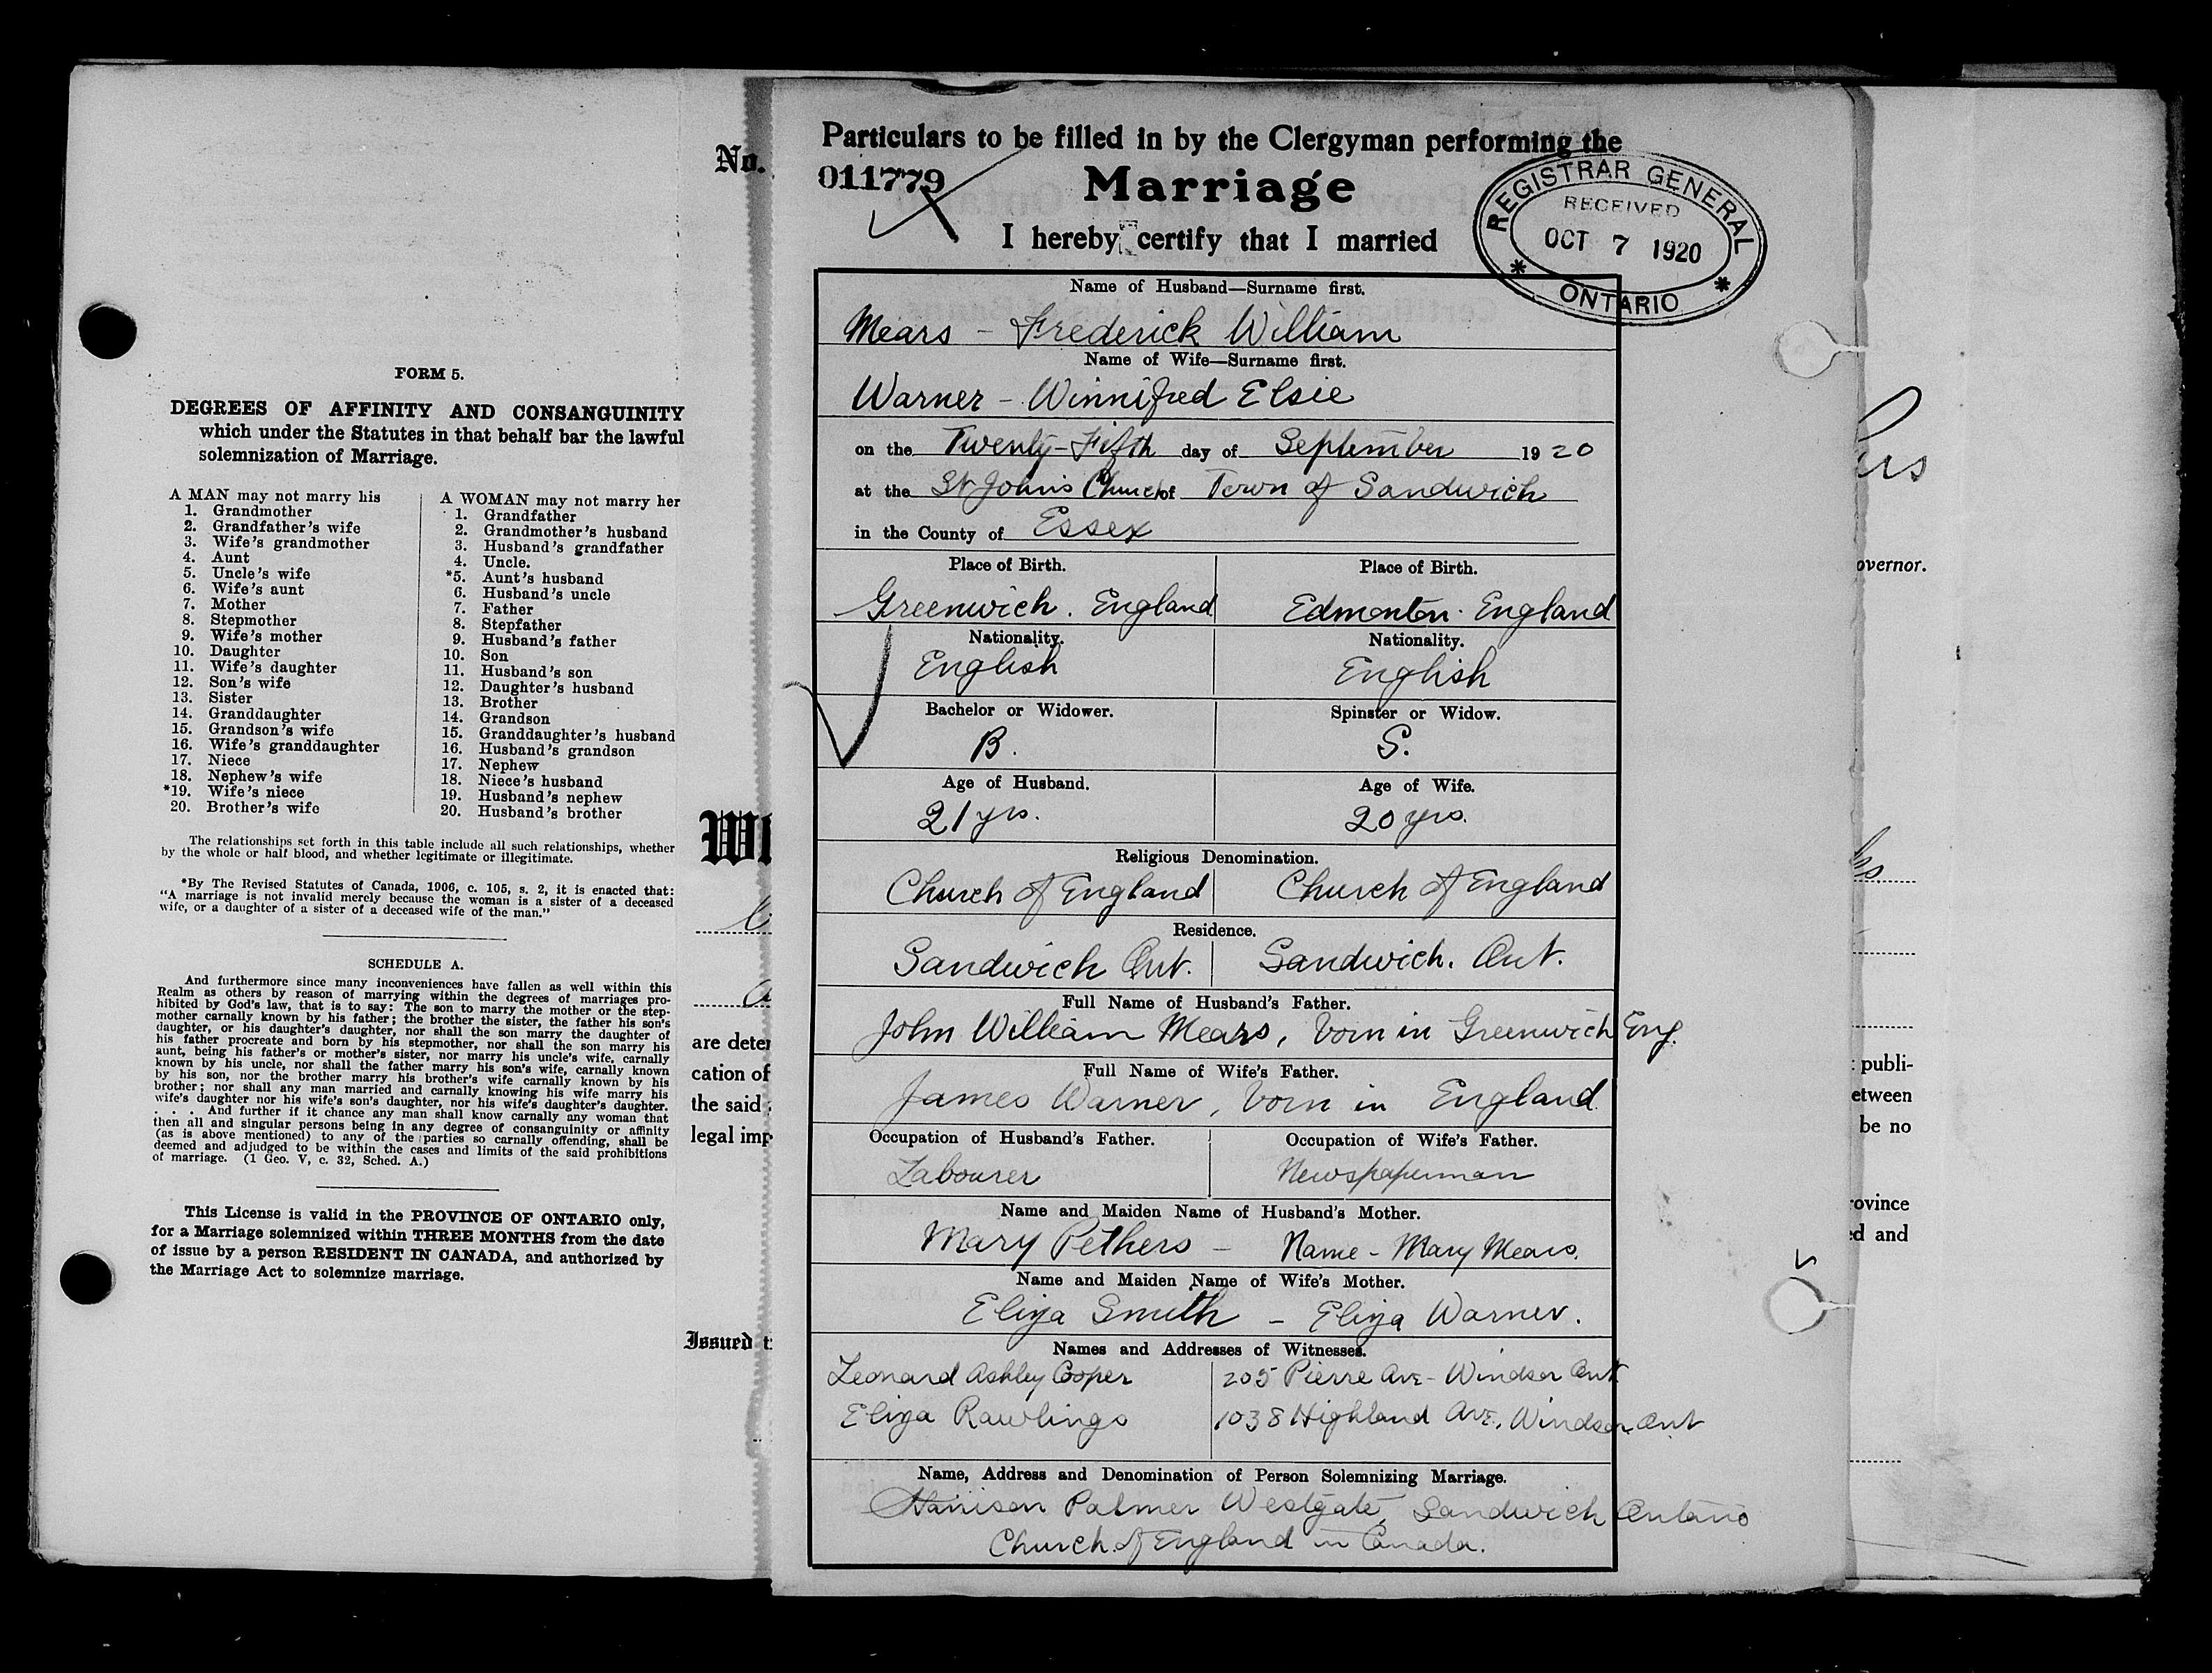 FORM 5.
DEGREES OF AFFINITY AND CONSANGUINITY
which under the Statutes in that behalf bar the lawful
solemnization of Marriage.
A MAN may not marry his
1. Grandmother
2. Grandfather's wife
3. Wife's grandmother
4. Aunt
5. Uncle's wife
6. Wife's aunt
7. Mother
8. Stepmother
9. Wife's mother
10. Daughter
11. Wife's daughter
12. Son's wife
13. Sister
14. Granddaughter
15. Grandson's wife
16. Wife's granddaughter
17. Niece
18. Nephew's wife
*19. Wife's niece
20. Brother's wife
A WOMAN may not marry her
1. Grandfather
2. Grandmother's husband
3. Husband's grandfather
4. Uncle.
*5. Aunt's husband
6. Husband's uncle
7. Father
8. Stepfather
9. Husband's father
10. Son
11. Husband's son
12. Daughter's husband
13. Brother
14. Grandson
15. Granddaughter's husband
16. Husband's grandson
17. Nephew
18. Niece's husband
19. Husband's nephew
20. Husband's brother
The relationships set forth in this table include all such relationships, whether
by the whole or half blood, and whether legitimate or illegitimate.
*By The Revised Statutes of Canada, 1906, c. 105, s. 2, it is enacted that:
"A marriage is not invalid merely because the woman is a sister of a deceased
wife, or a daughter of a sister of a deceased wife of the man."
SCHEDULE A.
And furthermore since many inconveniences have fallen as well within this
Realm as others by reason of marrying within the degrees of marriages pro-
hibited by God's law, that is to say: The son to marry the mother or the step-
mother carnally known by his father; the brother the sister, the father his son's
daughter, or his daughter's daughter, nor shall the son marry the daughter of
his father procreate and born by his stepmother, nor shall the son marry his
aunt, being his father's or mother's sister, nor marry his uncle's wife, carnally
known by his uncle, nor shall the father marry his son's wife, carnally known
by his son, nor the brother marry his brother's wife carnally known by his
brother; nor shall any man married and carnally knowing his wife marry his
wife's daughter nor his wife's son's daughter, nor his wife's daughter's daughter.
. . . And further if it chance any man shall know carnally any woman that
then all and singular persons being in any degree of consanguinity or affinity
(as is above mentioned) to any of the parties so carnally offending, shall be
deemed and adjudged to be within the cases and limits of the said prohibitions
of marriage. (1 Geo. V, c. 32, Sched. A.)
This License is valid in the PROVINCE OF ONTARIO only,
for a Marriage solemnized within THREE MONTHS from the date
of issue by a person RESIDENT IN CANADA, and authorized by
the Marriage Act to solemnize marriage.
No.
are deter
cation of
the said
legal imp
Issued t
Particulars to be filled in by the Clergyman performing the
011779
Marriage
I hereby certify that I married
REGISTRAR GENERAL
RECEIVED
OCT 7 1920
ONTARIO
Name of Husband—Surname first.
Mears - Frederick William
Name of Wife—Surname first.
Warner - Winnifred Elsie
on the Twenty-Fifth day of September 1920
at the St John's Church of Town of Sandwich
in the County of Essex
Place of Birth. Place of Birth.
Greenwich. England Edmonton. England
Nationality. Nationality.
English English
Bachelor or Widower. Spinster or Widow.
B. S.
Age of Husband. Age of Wife.
21 yrs. 20 yrs.
Religious Denomination.
Church of England Church of England
Residence.
Sandwich Ont. Sandwich. Ont.
Full Name of Husband's Father.
John William Mears, born in Greenwich Eng.
Full Name of Wife's Father.
James Warner, born in England.
Occupation of Husband's Father. Occupation of Wife's Father.
Labourer Newspaperman
Name and Maiden Name of Husband's Mother.
Mary Pethers - Name - Mary Mears.
Name and Maiden Name of Wife's Mother.
Eliza Smith - Eliza Warner.
Names and Addresses of Witnesses.
Leonard Ashley Cooper 205 Pierre Ave - Windsor Ont
Eliza Rawlings 1038 Highland Ave, Windsor Ont
Name, Address and Denomination of Person Solemnizing Marriage.
Palmer Westgate, Sandwich Ontario
Church of England in Canada.
overnor.
publi-
etween
be no
rovince
ed and